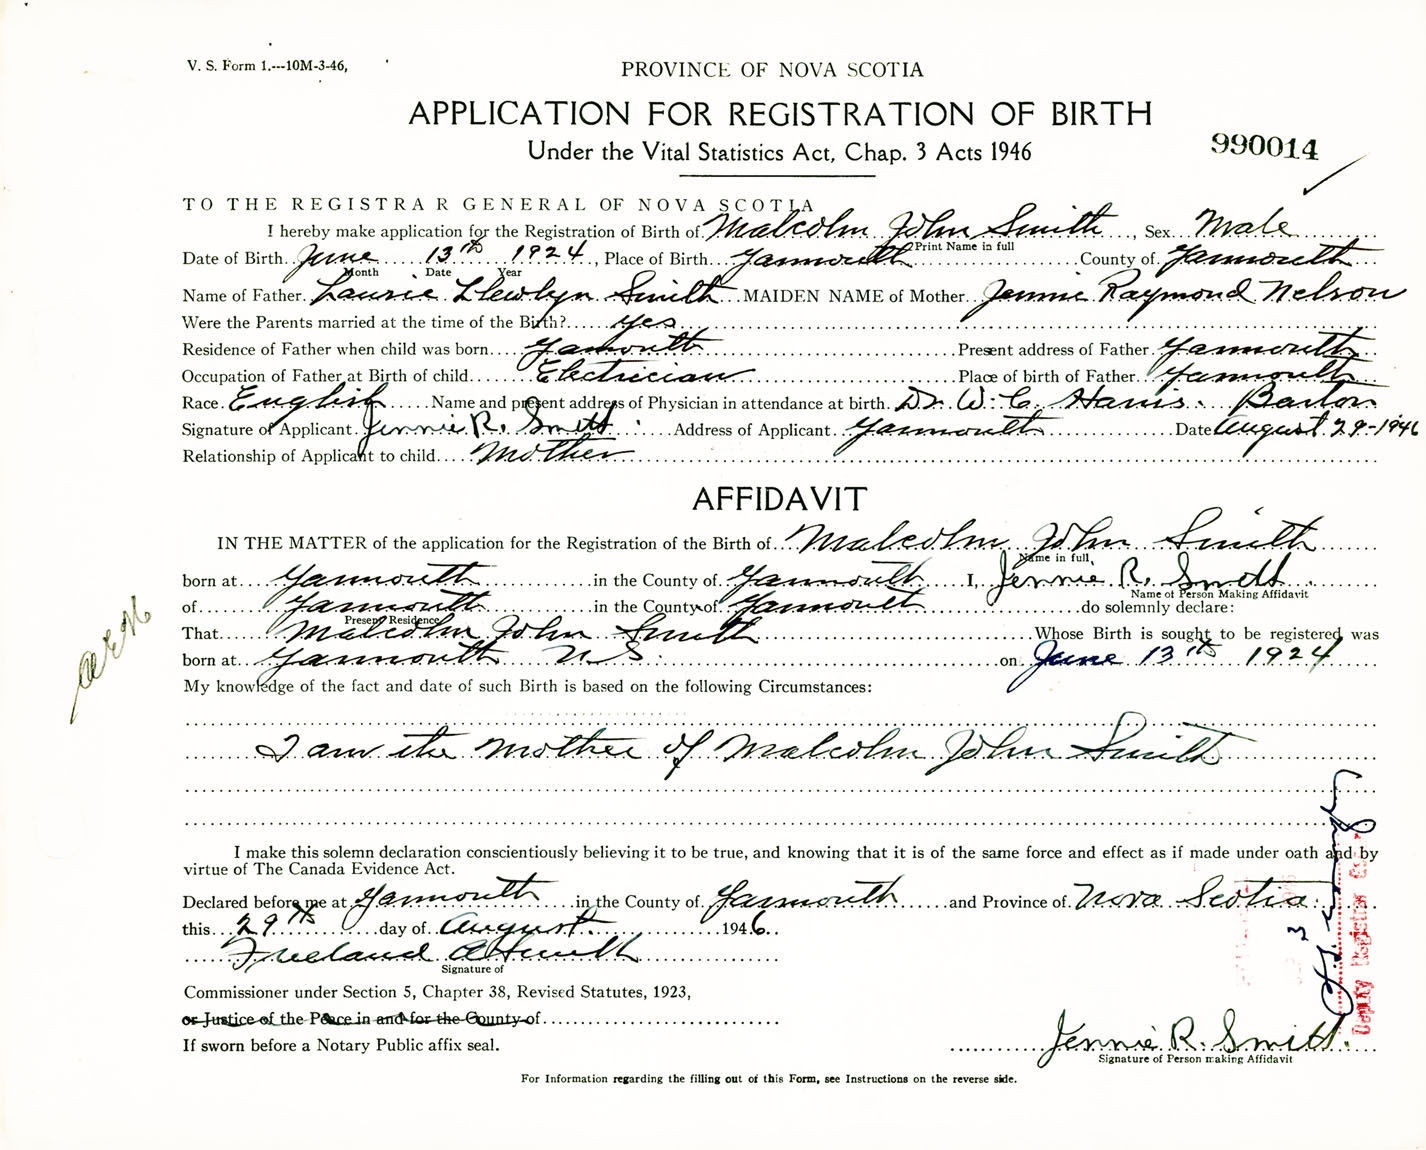 V. S. Form 1.---10M-3-46,
PROVINCE OF NOVA SCOTIA
APPLICATION FOR REGISTRATION OF BIRTH
Under the Vital Statistics Act, Chap. 3 Acts 1946
990014
TO THE REGISTRAR GENERAL OF NOVA SCOTIA
I hereby make application for the Registration of Birth of Malcolm John Smith, Sex Male
Print Name in full
Date of Birth June 13th 1924, Place of Birth Yarmouth County of Yarmouth
Month Date Year
Name of Father Laurie Llewlyn Smith MAIDEN NAME of Mother Jennie Raymond Nelson
Were the Parents married at the time of the Birth? yes
Residence of Father when child was born Yarmouth Present address of Father Yarmouth
Occupation of Father at Birth of child Electrician Place of birth of Father Yarmouth
Race English Name and present address of Physician in attendance at birth Dr. W. C. Harris. Barton
Signature of Applicant Jennie R. Smith Address of Applicant Yarmouth Date August 29-1946
Relationship of Applicant to child Mother
AFFIDAVIT
IN THE MATTER of the application for the Registration of the Birth of Malcolm John Smith
Name in full
born at Yarmouth in the County of Yarmouth I, Jennie R. Smith
Name of Person Making Affidavit
of Yarmouth in the County of Yarmouth do solemnly declare:
Present Residence
That Malcolm John Smith Whose Birth is sought to be registered was
born at Yarmouth N.S. on June 13th 1924
My knowledge of the fact and date of such Birth is based on the following Circumstances:
I am the Mother of Malcolm John Smith
I make this solemn declaration conscientiously believing it to be true, and knowing that it is of the same force and effect as if made under oath and by
virtue of The Canada Evidence Act.
Declared before me at Yarmouth in the County of Yarmouth and Province of Nova Scotia
this 29th day of August. 1946.
Freeland A Smith
Signature of
Commissioner under Section 5, Chapter 38, Revised Statutes, 1923,
or Justice of the Peace in and for the County of
If sworn before a Notary Public affix seal.
Jennie R. Smith.
Signature of Person making Affidavit
For Information regarding the filling out of this Form, see Instructions on the reverse side.
Deputy Registrar